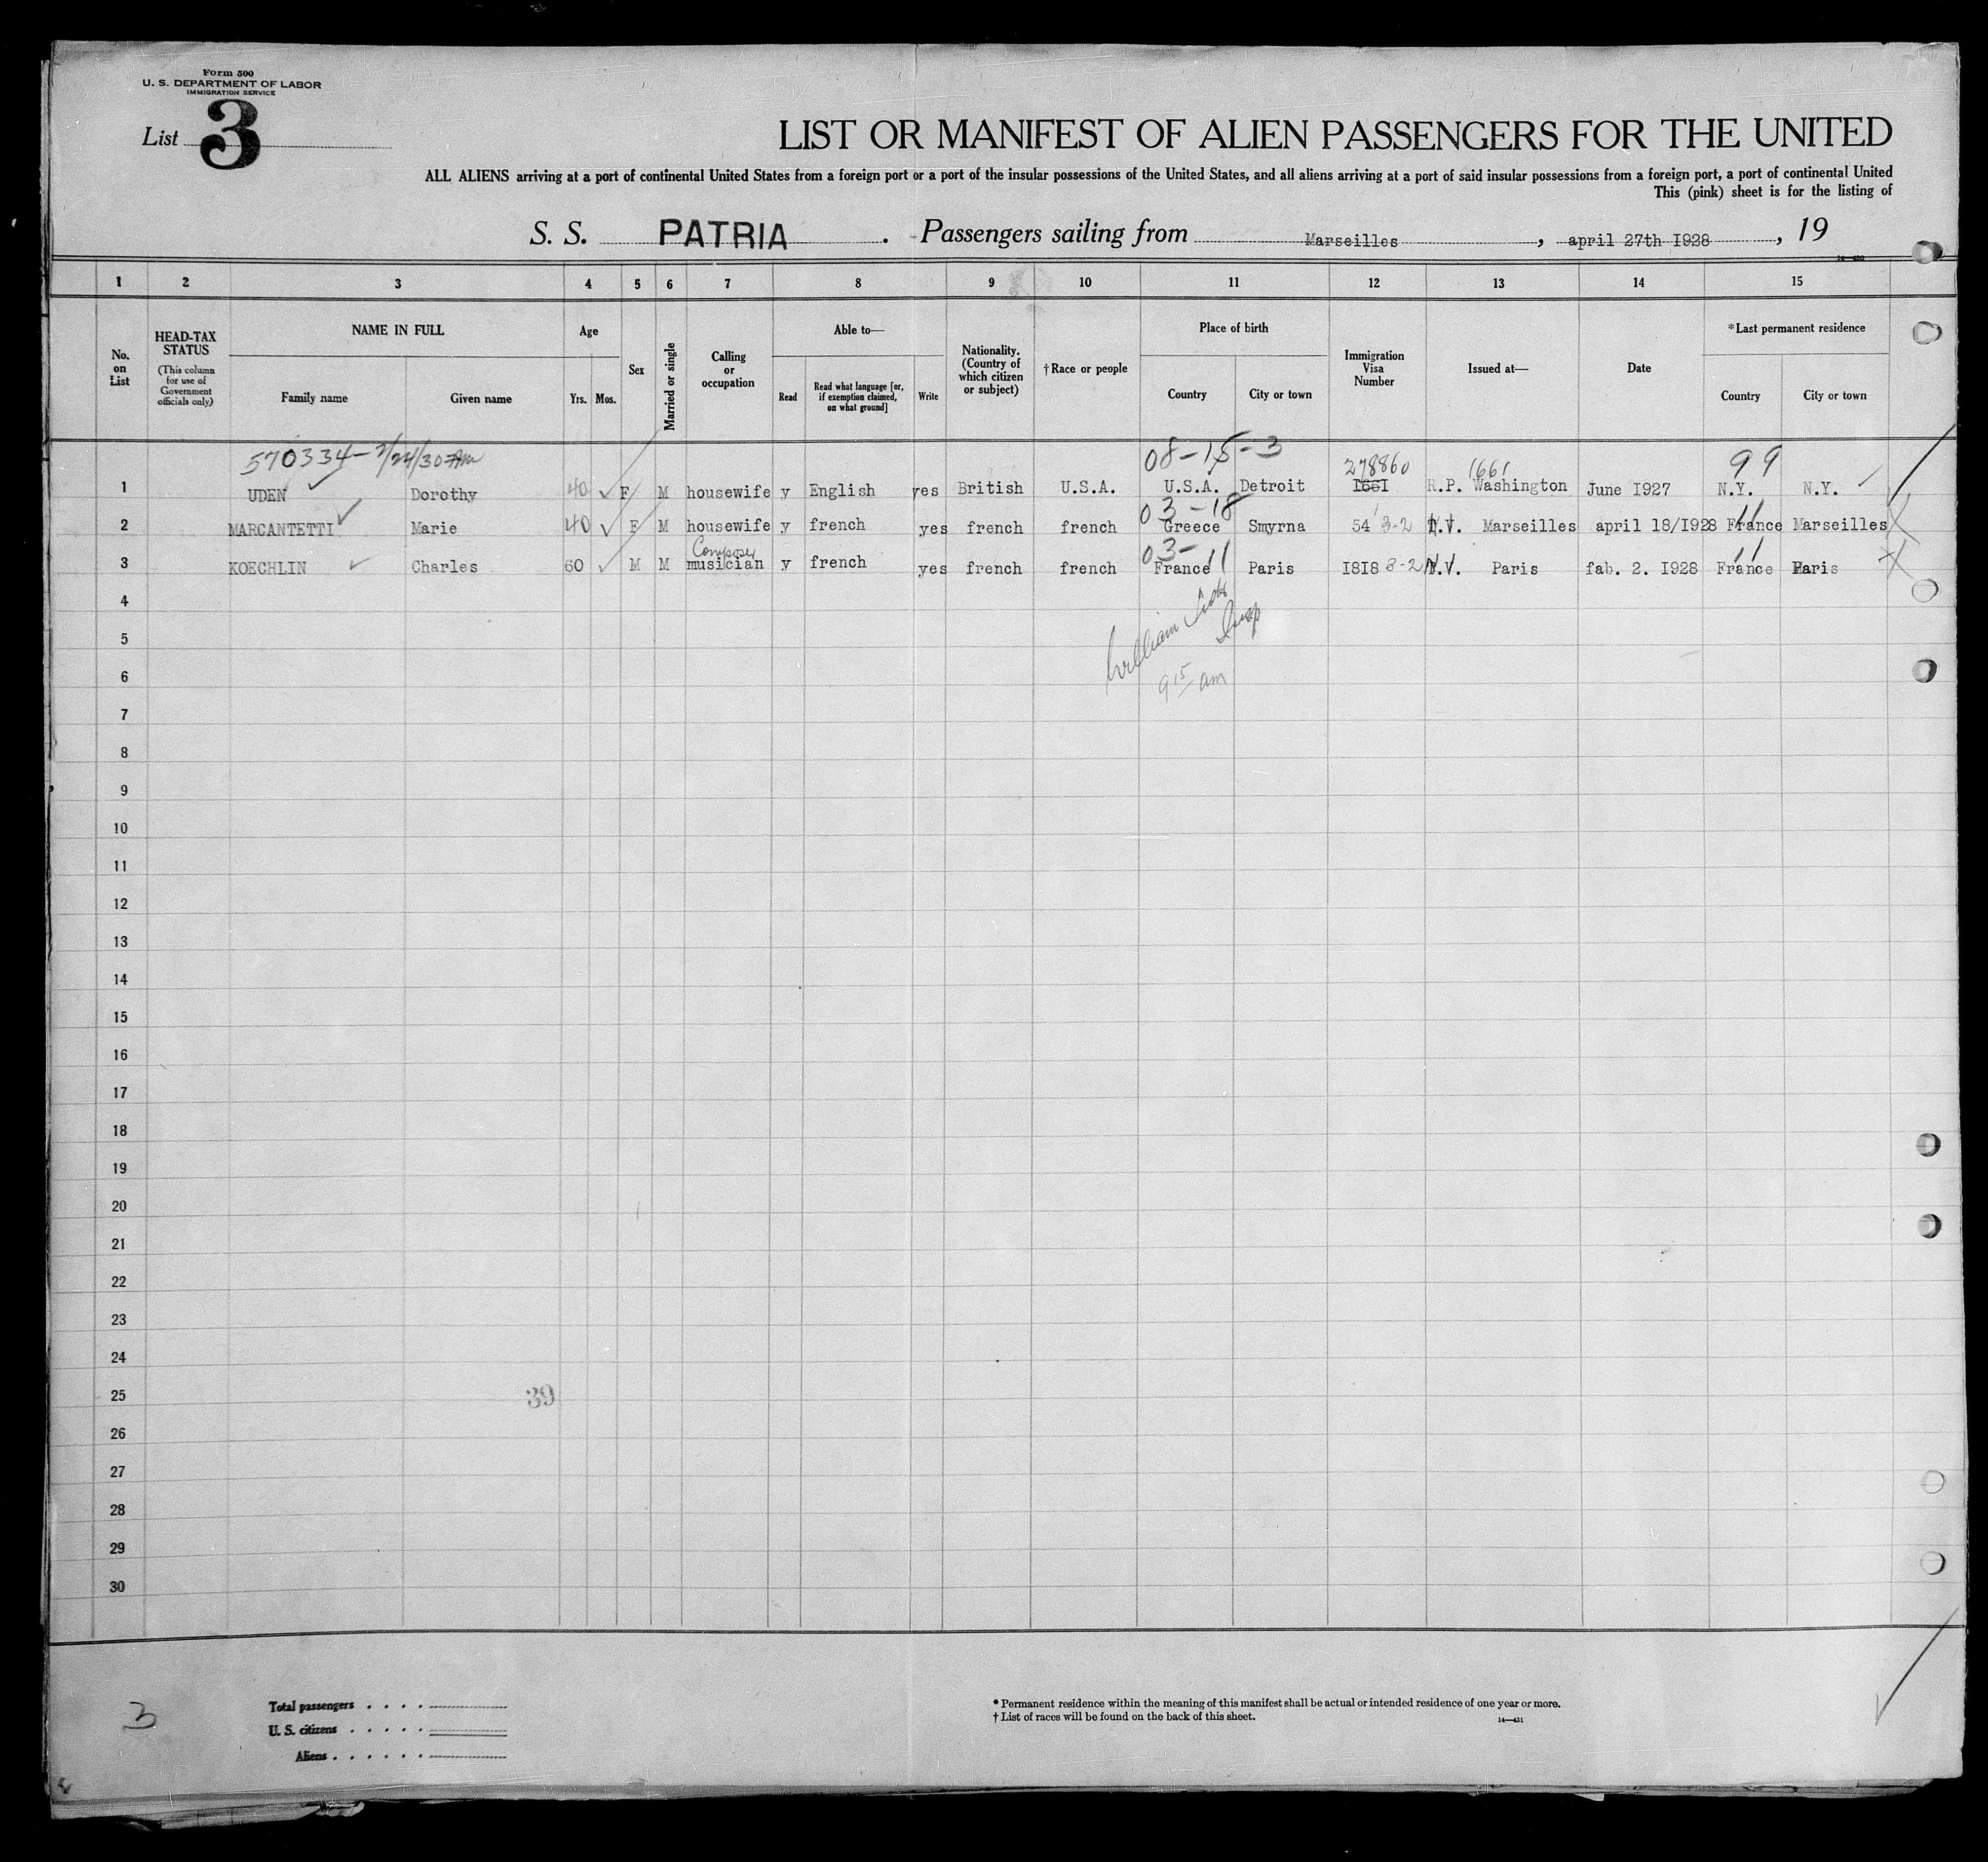 Form 500
U. S. DEPARTMENT OF LABOR
IMMIGRATION SERVICE
List 3
LIST OR MANIFEST OF ALIEN PASSENGERS FOR THE UNITED
ALL ALIENS arriving at a port of continental United States from a foreign port or a port of the insular possessions of the United States, and all aliens arriving at a port of said insular possessions from a foreign port, a port of continental United
This (pink) sheet is for the listing of
S. S. PATRIA. Passengers sailing from Marseilles, april 27th I928, 19
1 2 3 4 5 6 7 8 9 10 11 12 13 14 15
No. on List
HEAD-TAX STATUS (This column for use of Government officials only)
NAME IN FULL
Family name Given name
Age
Yrs. Mos.
Sex
Married or single
Calling or occupation
Able to—
Read
Read what language [or, if exemption claimed, on what ground]
Write
Nationality. (Country of which citizen or subject)
†Race or people
Place of birth
Country City or town
Immigration Visa Number
Issued at—
Date
*Last permanent residence
Country City or town
570334 - 2/24/30 08-15-3 278860 1661 99
1 UDEN Dorothy 40 F M housewife y English yes British U.S.A. U.S.A. Detroit I66I R.P. Washington June I927 N.Y. N.Y.
03-18 11
2 MARCANTETTI Marie 40 F M housewife y french yes french french Greece Smyrna 54 3-2 N.V. Marseilles april I8/I928 France Marseilles
Composer 03-11 11
3 KOECHLIN Charles 60 M M musician y french yes french french France Paris I8I8 3-2 N.V. Paris fab. 2. I928 France Paris
4
William
Insp
5
6
9 15 am
7
8
9
10
11
12
13
14
15
16
17
18
19
20
21
22
23
24
25
39
26
27
28
29
30
3
Total passengers
U. S. citizens
Aliens
* Permanent residence within the meaning of this manifest shall be actual or intended residence of one year or more.
† List of races will be found on the back of this sheet.
14—431